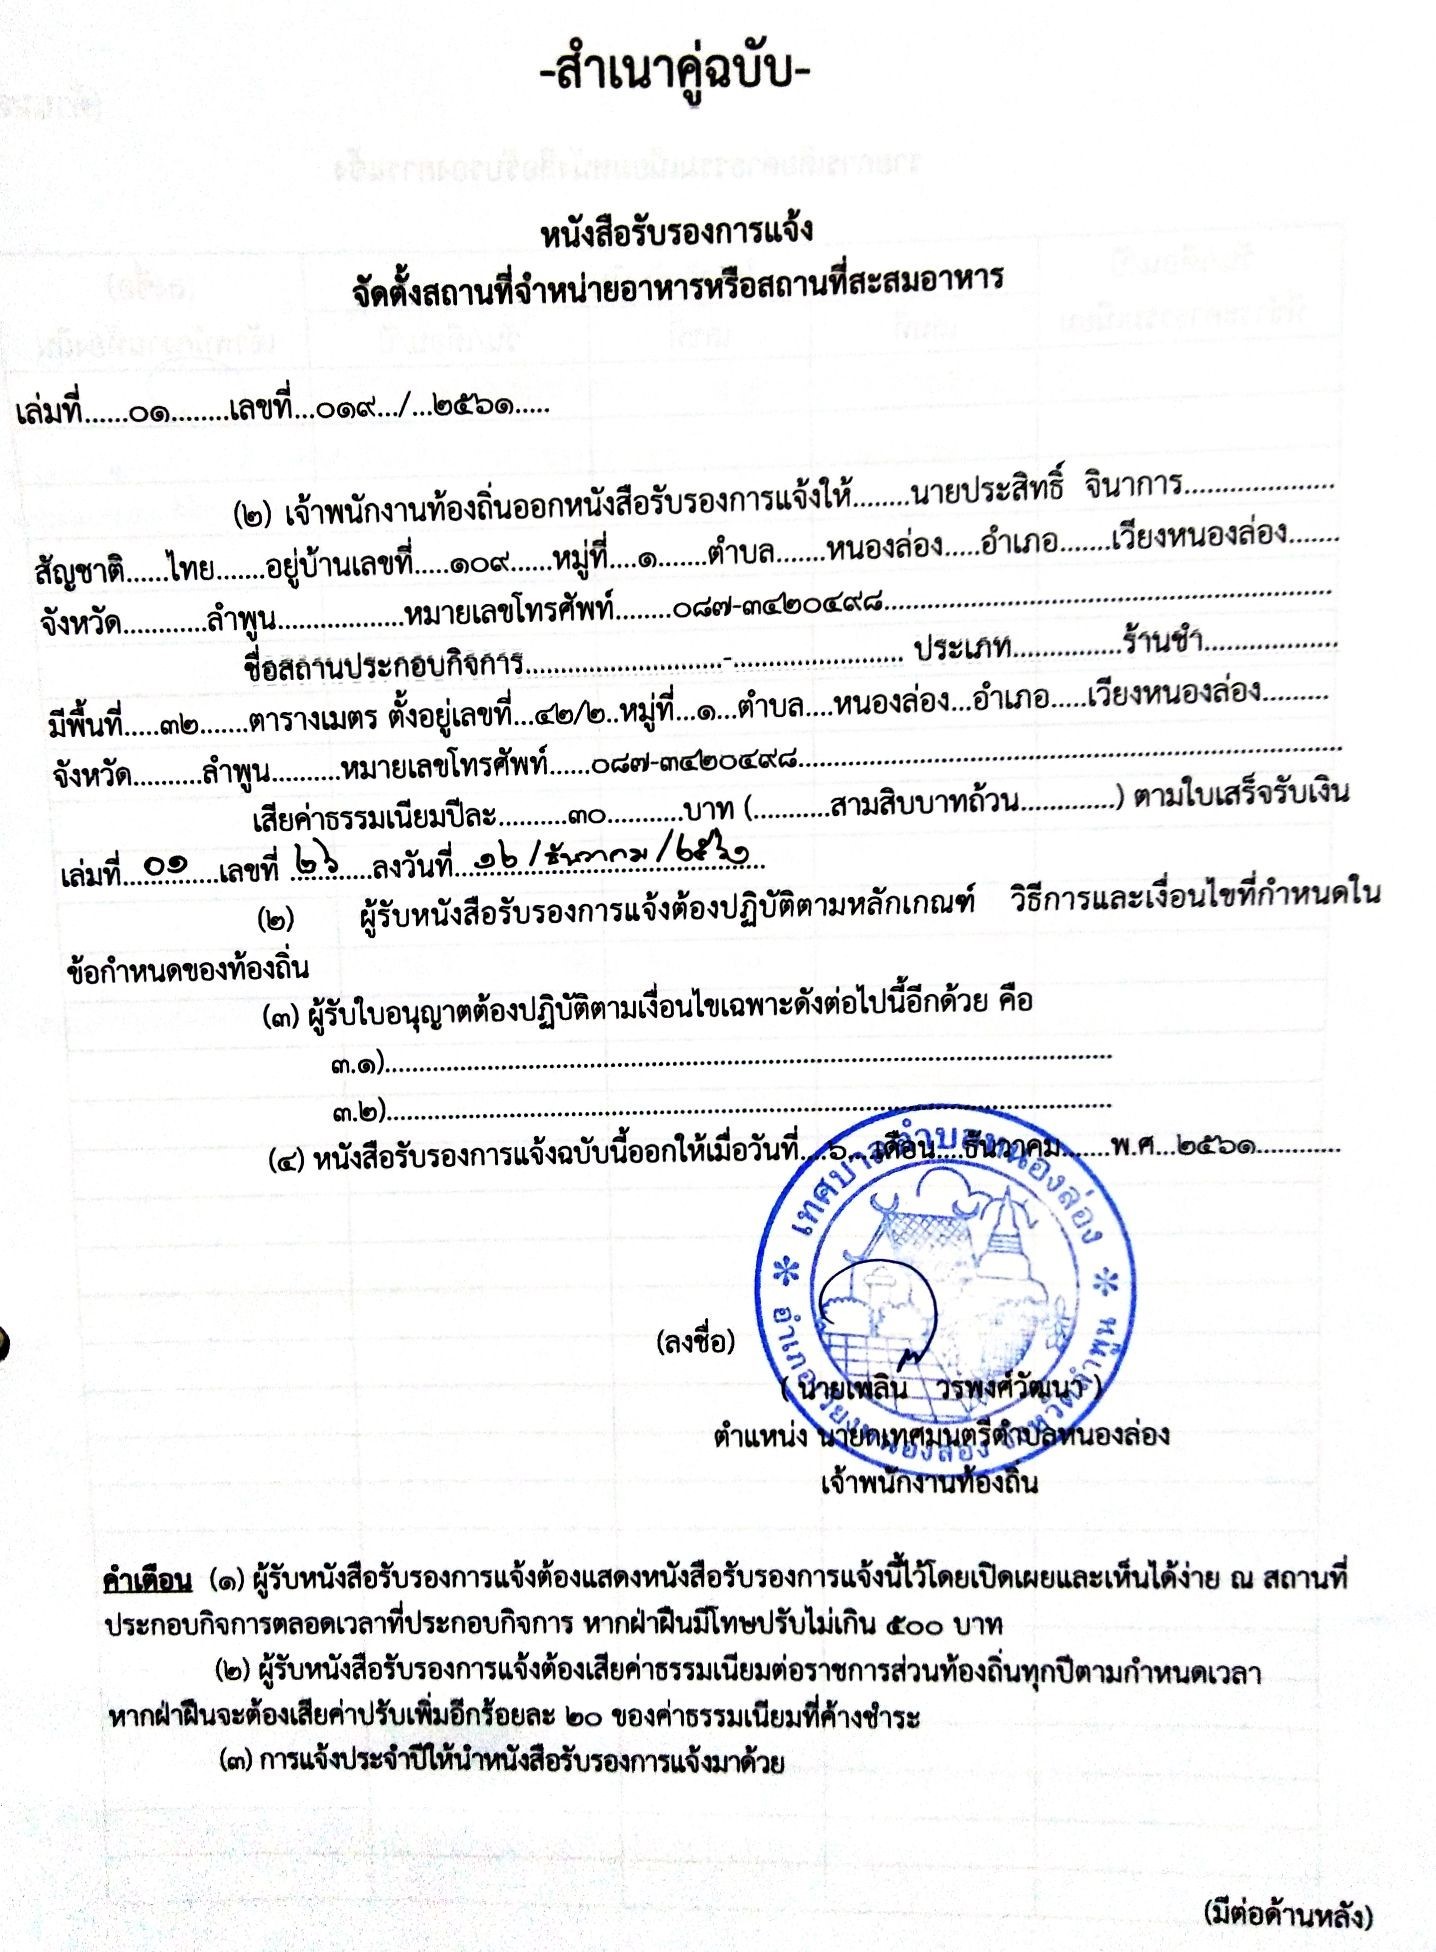 -สำเนาคู่ฉบับ-
หนังสือรับรองการแจ้ง
จัดตั้งสถานที่จำหน่ายอาหารหรือสถานที่สะสมอาหาร
เล่มที่......๐๑........เลขที่...๐๑๙.../...๒๕๖๑.....
(๒) เจ้าพนักงานท้องถิ่นออกหนังสือรับรองการแจ้งให้........นายประสิทธิ์ จินาการ.....................
สัญชาติ......ไทย.......อยู่บ้านเลขที่.....๑๐๙......หมู่ที่....๑.......ตำบล.......หนองล่อง.....อำเภอ.......เวียงหนองล่อง.......
จังหวัด............ลำพูน..................หมายเลขโทรศัพท์........๐๘๗-๓๔๒๐๔๙๘...............................................................
ชื่อสถานประกอบกิจการ............................-........................ ประเภท...............ร้านชำ...................
มีพื้นที่.....๓๒.......ตารางเมตร ตั้งอยู่เลขที่...๔๒/๒..หมู่ที่...๑...ตำบล....หนองล่อง...อำเภอ.....เวียงหนองล่อง.........
จังหวัด..........ลำพูน..........หมายเลขโทรศัพท์......๐๘๗-๓๔๒๐๔๙๘..............................................................................
เสียค่าธรรมเนียมปีละ..........๓๐...........บาท (...........สามสิบบาทถ้วน.............) ตามใบเสร็จรับเงิน
เล่มที่....๐๑....เลขที่ ..๒๖....ลงวันที่...๑๒ /ธันวาคม /๒๕๖๑...
(๒) ผู้รับหนังสือรับรองการแจ้งต้องปฏิบัติตามหลักเกณฑ์ วิธีการและเงื่อนไขที่กำหนดใน
ข้อกำหนดของท้องถิ่น
(๓) ผู้รับใบอนุญาตต้องปฏิบัติตามเงื่อนไขเฉพาะดังต่อไปนี้อีกด้วย คือ
๓.๑)........................................................................................................
๓.๒)........................................................................................................
(๔) หนังสือรับรองการแจ้งฉบับนี้ออกให้เมื่อวันที่....๖....เดือน....ธันวาคม.......พ.ศ...๒๕๖๑............
เทศบาลตำบลหนองล่อง
อำเภอเวียงหนองล่อง จังหวัดลำพูน
(ลงชื่อ)
( นายเพลิน วรพงศ์วัฒนา )
ตำแหน่ง นายกเทศมนตรีตำบลหนองล่อง
เจ้าพนักงานท้องถิ่น
คำเตือน (๑) ผู้รับหนังสือรับรองการแจ้งต้องแสดงหนังสือรับรองการแจ้งนี้ไว้โดยเปิดเผยและเห็นได้ง่าย ณ สถานที่
ประกอบกิจการตลอดเวลาที่ประกอบกิจการ หากฝ่าฝืนมีโทษปรับไม่เกิน ๕๐๐ บาท
(๒) ผู้รับหนังสือรับรองการแจ้งต้องเสียค่าธรรมเนียมต่อราชการส่วนท้องถิ่นทุกปีตามกำหนดเวลา
หากฝ่าฝืนจะต้องเสียค่าปรับเพิ่มอีกร้อยละ ๒๐ ของค่าธรรมเนียมที่ค้างชำระ
(๓) การแจ้งประจำปีให้นำหนังสือรับรองการแจ้งมาด้วย
(มีต่อด้านหลัง)